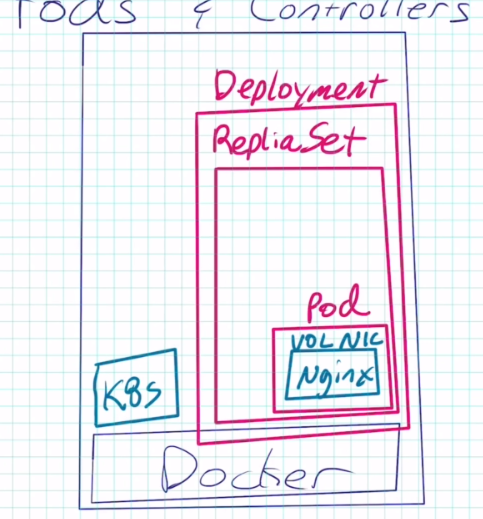 Pods & Controllers
Deployment
RepliaSet
Pod
VOL NIC
Nginx
K8s
Docker